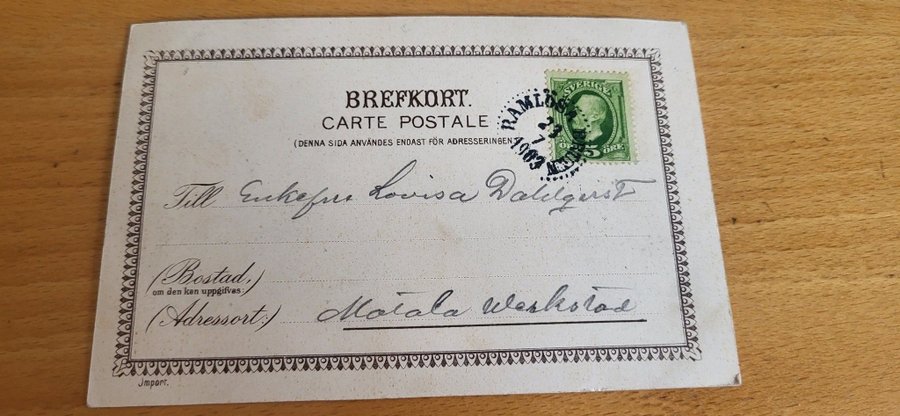 BREFKORT.
CARTE POSTALE
(DENNA SIDA ANVÄNDES ENDAST FÖR ADRESSERINGEN)
SVERIGE
5 ÖRE
RAMLÖSA BRUNN
23
7
1903
Till Enkefru Lovisa Dahlqvist
(Bostad,)
om den kan uppgifvas
(Adressort:) Motala Werkstad
Import.